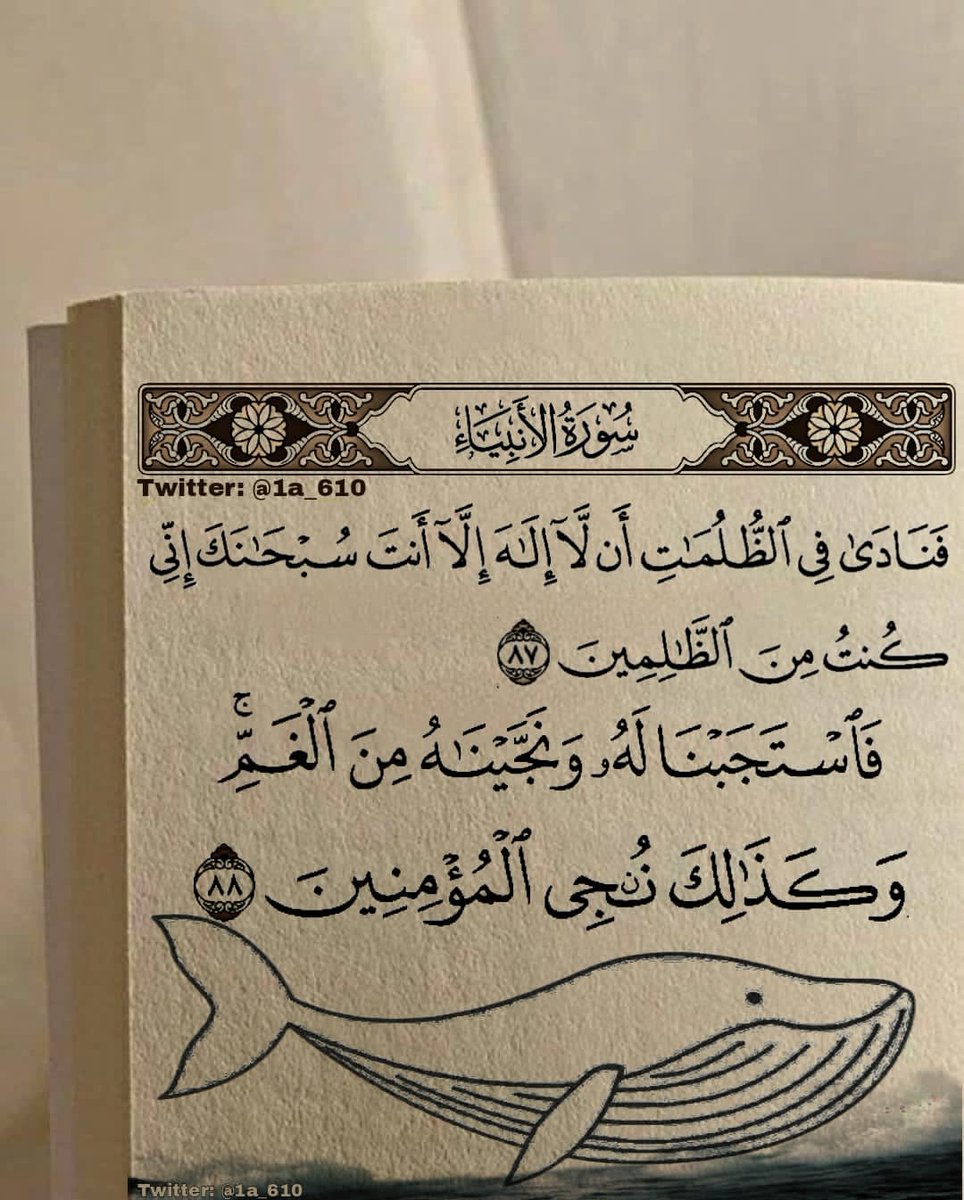 سُورَةُ الأَنبِيَاءِ
Twitter: @1a_610
فَنَادَىٰ فِى ٱلظُّلُمَٰتِ أَن لَّآ إِلَٰهَ إِلَّآ أَنتَ سُبْحَٰنَكَ إِنِّى
كُنتُ مِنَ ٱلظَّٰلِمِينَ ٨٧
فَٱسْتَجَبْنَا لَهُۥ وَنَجَّيْنَٰهُ مِنَ ٱلْغَمِّ ۚ
وَكَذَٰلِكَ نُـۨجِى ٱلْمُؤْمِنِينَ ٨٨
Twitter: @1a_610